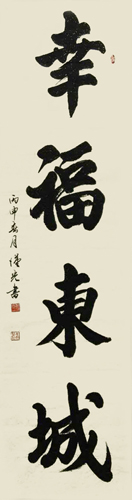 幸福東城
丙申春月 漢光書